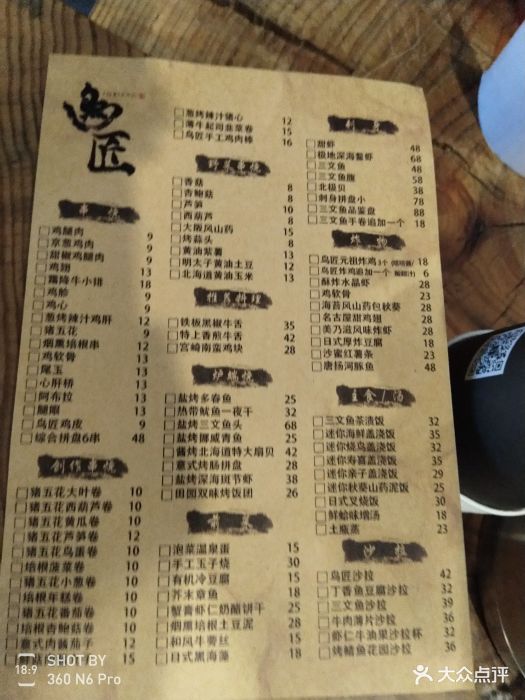 鸟匠
串烧
鸡腿肉 9
京葱鸡肉 9
甜椒鸡腿肉 9
鸡翅 13
霜降牛小排 18
鸡胗 9
鸡心 9
葱烤辣汁鸡肝 12
猪五花 9
烟熏培根串 12
鸡软骨 13
尾玉 13
心肝桥 13
阿布拉 13
腿眼 13
鸟匠鸡皮 9
综合拼盘6串 48
創作串燒
猪五花大叶卷 10
猪五花西葫芦卷 10
猪五花黄瓜卷 10
猪五花芦笋卷 12
猪五花鸟蛋卷 10
培根菠菜卷 10
猪五花小葱卷 10
培根年糕卷 10
猪五花番茄卷 10
培根杏鲍菇卷 10
意式肉酱茄子 12
15
葱烤辣汁猪心 12
薄牛起司韭菜卷 15
鸟匠手工鸡肉棒 16
野菜串烧
香菇 8
杏鲍菇 8
芦笋 10
西葫芦 8
大阪凤山药 15
烤蒜头 8
黄油紫薯 13
明太子黄油土豆 12
北海道黄油玉米 13
推荐料理
铁板黑椒牛舌 35
特上香煎牛舌 42
宫崎南蛮鸡块 28
炉端烧
盐烤多春鱼 25
热带鱿鱼一夜干 32
盐烤三文鱼头 68
盐烤挪威青鱼 25
酱烤北海道特大扇贝 42
意式烤肠拼盘 28
盐烤深海斑节虾 38
田园双味烤饭团 26
前菜
泡菜温泉蛋 15
手工玉子烧 30
有机冷豆腐 15
芥末章鱼 18
蟹膏虾仁奶酪饼干 25
烟熏培根土豆泥 28
和风牛蒡丝 15
日式黑海藻 18
刺身
甜虾 48
极地深海鳌虾 68
三文鱼 48
三文鱼腩 58
北极贝 38
刺身拼盘小 78
三文鱼品鉴盘 88
三文鱼手卷追加一个 18
炸物
鸟匠元祖炸鸡3个 18
鸟匠炸鸡追加一个 6
酥炸水晶虾 28
鸡软骨 23
海苔凤山药包秋葵 28
名古屋甜鸡翅 28
美乃滋风味炸虾 28
日式厚炸豆腐 18
沙蜜红薯条 23
唐扬河豚鱼 28
主食/汤
三文鱼茶渍饭 32
迷你海鲜盖浇饭 35
迷你烧鸟盖浇饭 28
迷你寿喜盖浇饭 35
迷你亲子盖浇饭 29
迷你秋葵山药泥饭 25
日式叉烧饭 30
鲜蛤味噌汤 18
土瓶蒸 23
沙拉
鸟匠沙拉 42
丁香鱼豆腐沙拉 32
三文鱼沙拉 39
牛肉薄片沙拉 42
虾仁牛油果沙拉杯 32
烤鲭鱼花园沙拉 36
18:9
SHOT BY
360 N6 Pro
大众点评